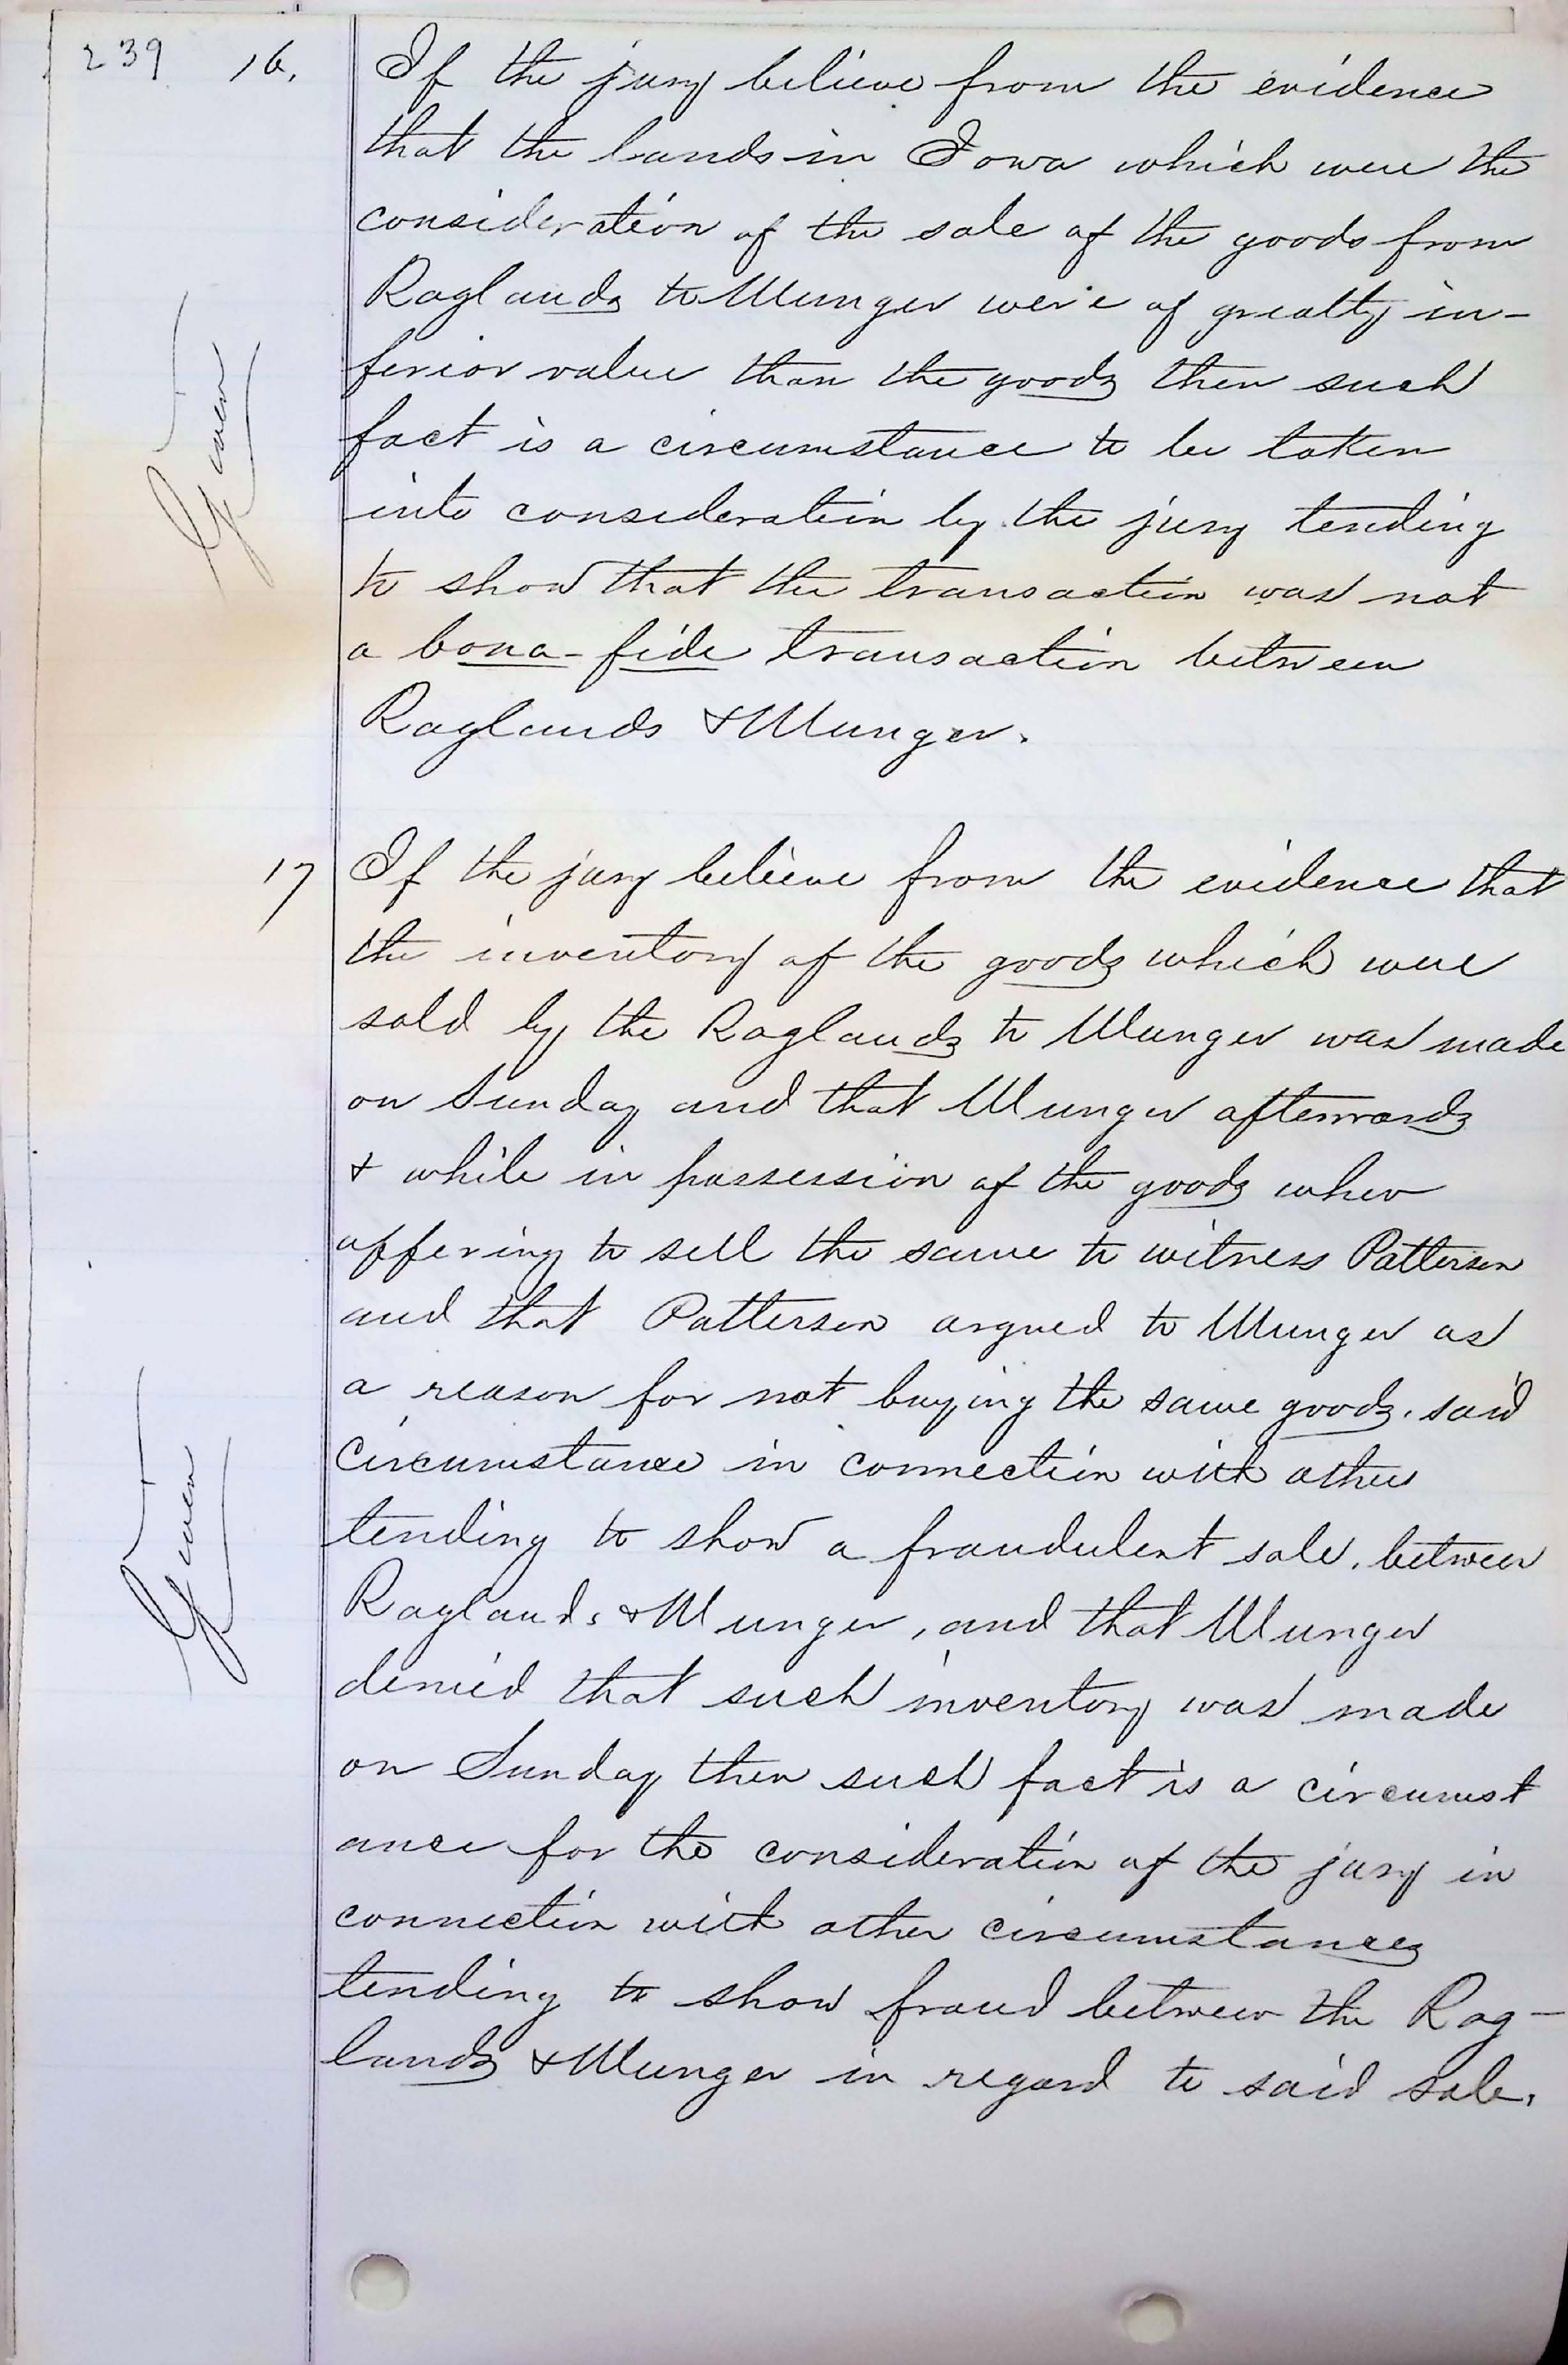 239 16. If the jury believe from the evidence
that the lands in Iowa which were the
consideration of the sale of the goods from
Raglands to Munger were of greatly in-
ferior value than the goods then such
fact is a circumstance to be taken
into consideration by the jury tending
to show that the transaction was not
a bona-fide transaction between
Raglands & Munger.
Given
17 If the jury believe from the evidence that
the inventory of the goods which were
sold by the Raglands to Munger was made
on Sunday and that Munger afterwards
& while in possession of the goods when
offering to sell the same to witness Patterson
and that Patterson argued to Munger as
a reason for not buying the same goods. said
circumstance in connection with other
tending to show a fraudulent sale. between
Raglands & Munger, and that Munger
denied that such inventory was made
on Sunday then such fact is a circumst
ance for the consideration of the jury in
connection with other circumstances
tending to show fraud between the Rag-
lands & Munger in regard to said sale.
Given